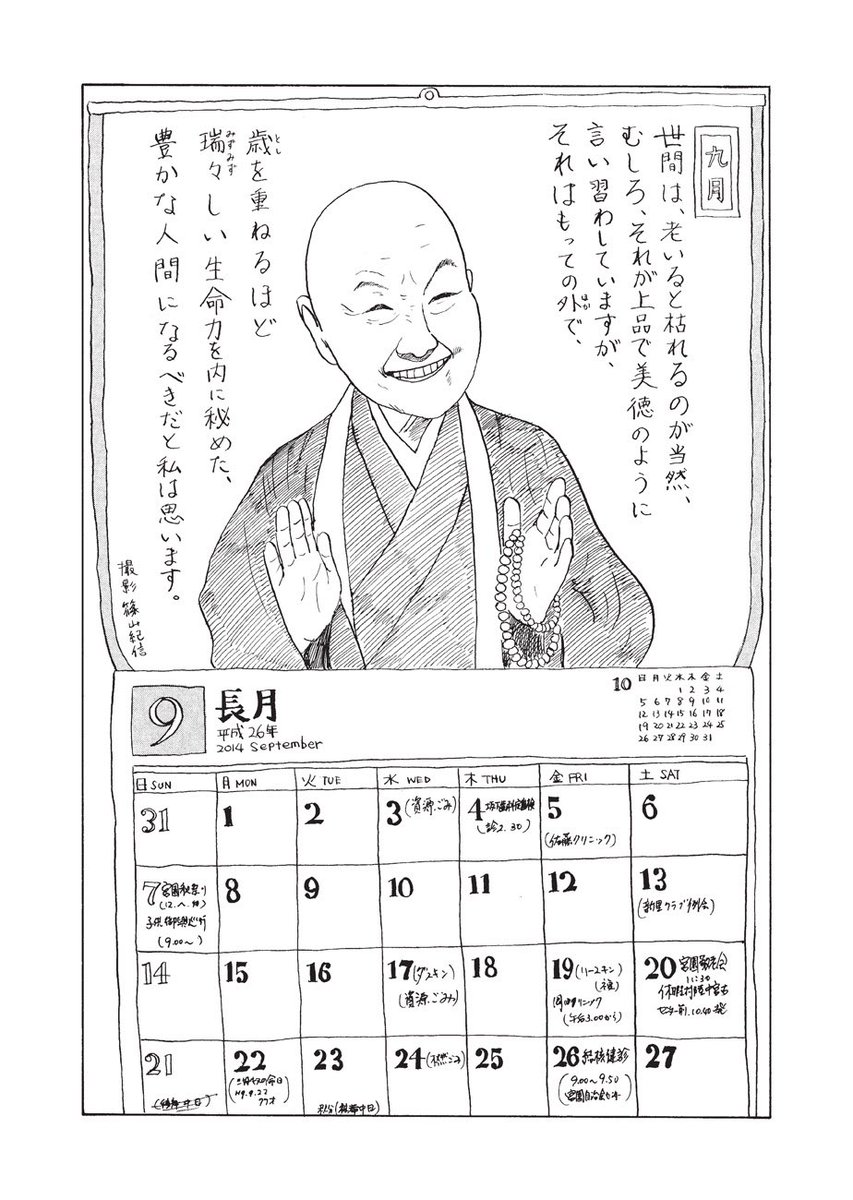 九月
世間は、老いると枯れるのが当然、
むしろ、それが上品で美徳のように
言い習わしていますが、
それはもっての外で、
ほか
歳を重ねるほど
とし
瑞々しい生命力を内に秘めた、
みずみず
豊かな人間になるべきだと私は思います。
撮影 篠山紀信
9 長月
平成26年
2014 September
10
日 月 火 水 木 金 土
1 2 3 4
5 6 7 8 9 10 11
12 13 14 15 16 17 18
19 20 21 22 23 24 25
26 27 28 29 30 31
日 SUN 月 MON 火 TUE 水 WED 木 THU 金 FRI 土 SAT
31 1 2 3 (資源ごみ) 4 5 6
(診2.30) (佐藤クリニック)
7 宮園秋祭り 8 9 10 11 12 13
(9.00〜)
14 15 16 17 (ダスキン) 18 19 (リースキン) 20 宮園敬老会
(資源ごみ) 11:30
(午后3.00から)
21 22 23 24 (不燃ごみ) 25 26 結核健診 27
9.00〜9.50
H9.9.22
77才